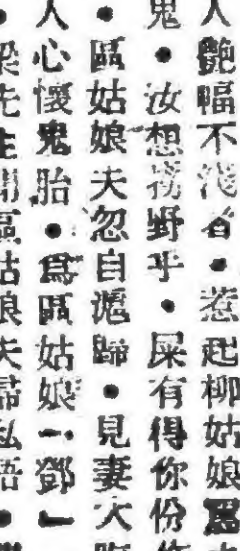 人艷福不淺者●惹起柳姑娘
鬼●汝想撈野乎●屎有得你份
●區姑娘夫忽自滬歸●見妻大
人心懷鬼胎●爲區姑娘「鄧」
梁先生開區姑娘夫歸私語●